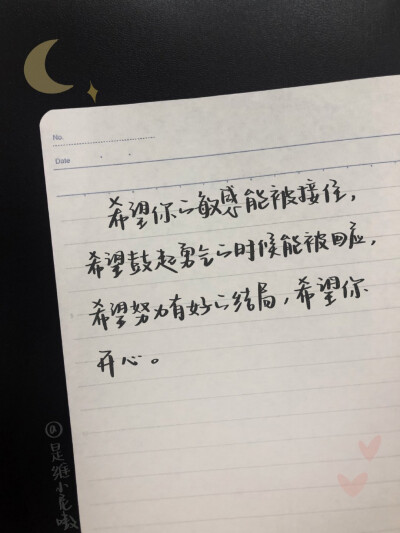 No.
Date
希望你的敏感能被接住，
希望鼓起勇气的时候能被回应，
希望努力有好的结局，希望你
开心。